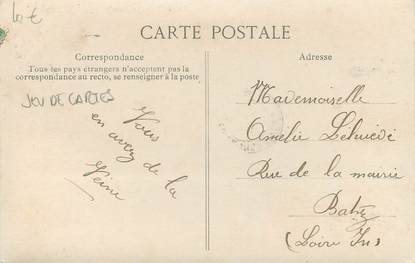 10 €
CARTE POSTALE
Correspondance
Tous les pays étrangers n'acceptent pas la
correspondance au recto, se renseigner à la poste
JEU DE CARTES
Vous
en avez de la
Veine
Adresse
Mademoiselle
Amelie
Rue de la mairie
Batz
(Loire Inf)